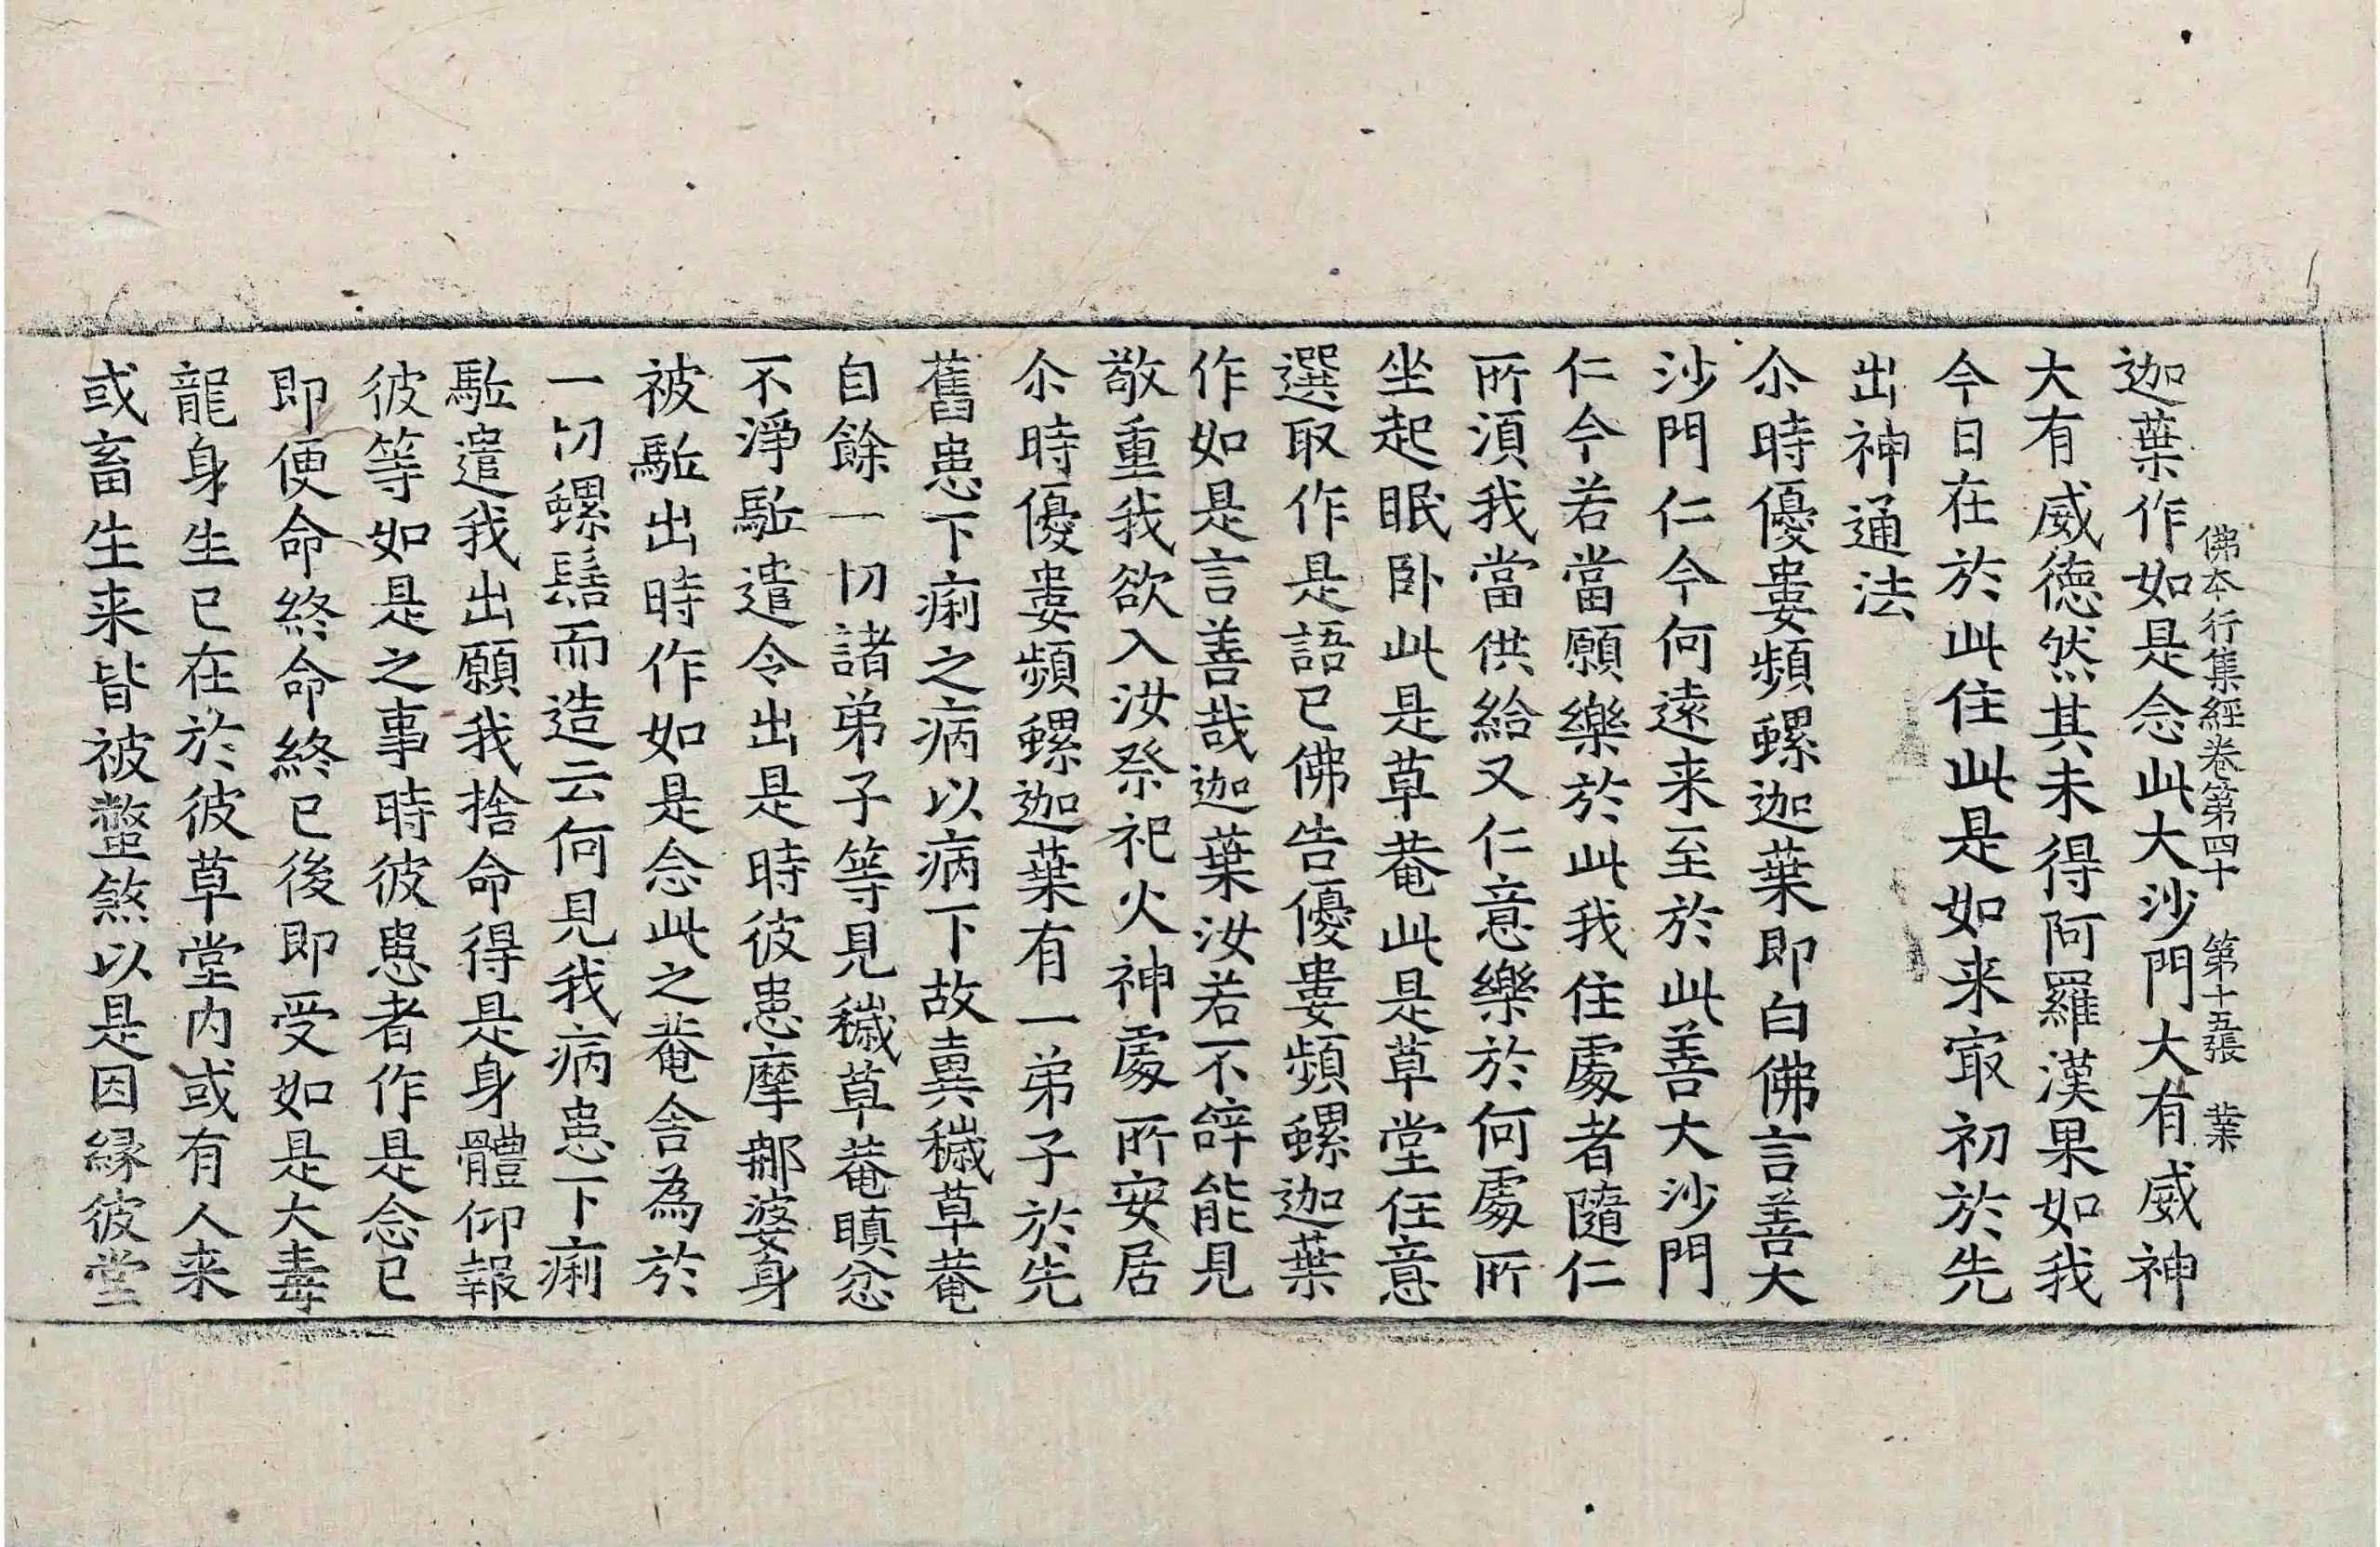 佛本行集經卷第四十 第十五張 業
迦葉作如是念此大沙門大有威神
大有威德然其未得阿羅漢果如我
今日在於此住此是如来㝡初於先
出神通法
尒時優婁頻螺迦葉即白佛言善大
沙門仁今何遠来至於此善大沙門
仁今若當願樂於此我住處者隨仁
所湏我當供給又仁意樂於何處所
坐起眠卧此是草菴此是草堂任意
選取作是語已佛告優婁頻螺迦葉
作如是言善哉迦葉汝若不辭能見
敬重我欲入汝祭祀火神處所安居
尒時優婁頻螺迦葉有一弟子於先
舊患下痢之病以病下故糞穢草菴
自餘一切諸弟子等見穢草菴瞋忿
不淨駈遣令出是時彼患摩那婆身
被駈出時作如是念此之菴舍為於
一切螺髻而造云何見我病患下痢
駈遣我出願我捨命得是身體仰報
彼等如是之事時彼患者作是念已
即便命終命終已後即受如是大毒
龍身生已在於彼草堂内或有人来
或畜生来皆被螫煞以是因縁彼堂